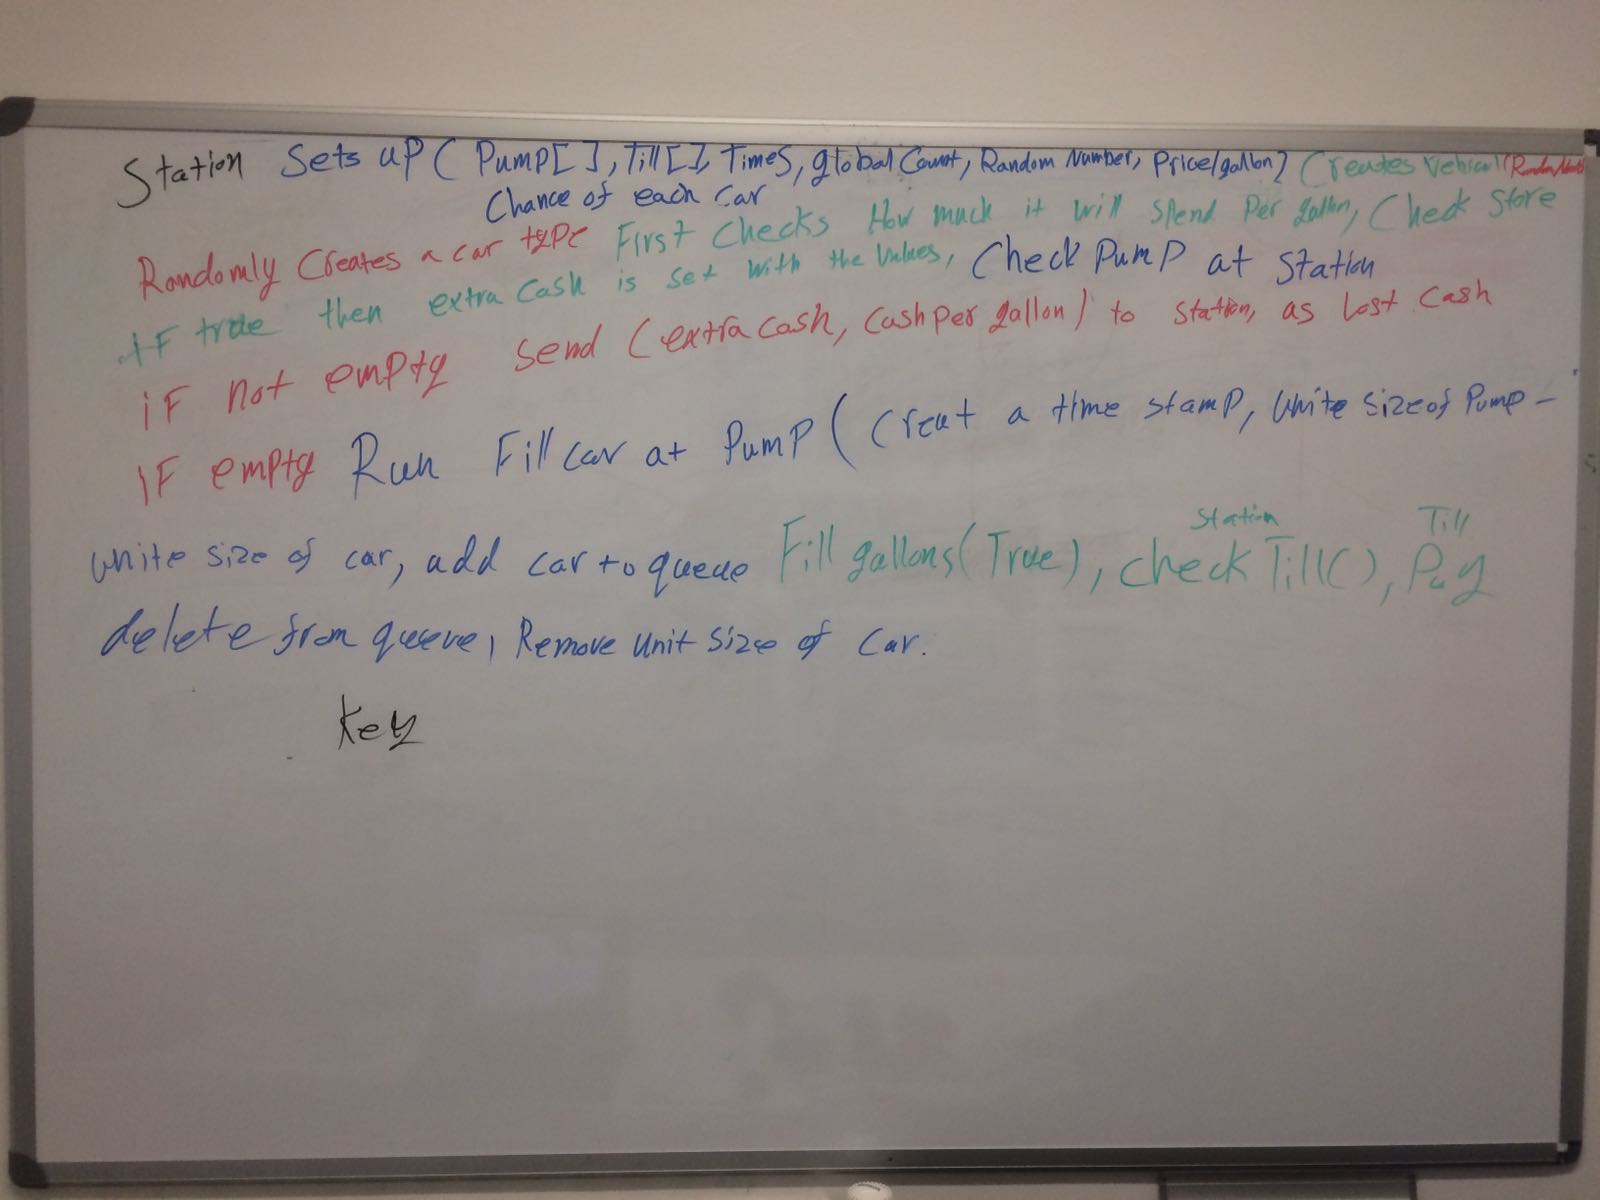 Station Sets up ( Pump[ ], Till[ ], Times, global Count, Random Number, Price/gallon) Creates Vehical (Random
Chance of each car
Randomly Creates a car type First Checks How much it will spend Per gallon, Check Store
if true then extra Cash is set with the Values, Check Pump at Station
if not empty send (extra cash, Cash per gallon) to station, as Lost Cash
if empty Run Fill car at Pump ( Creat a time stamp, Unite size of Pump -
Unite size of car, add car to queue Fill gallons(True), check Till(), Pay
Station Till
delete from queue, Remove unit size of car.
Key